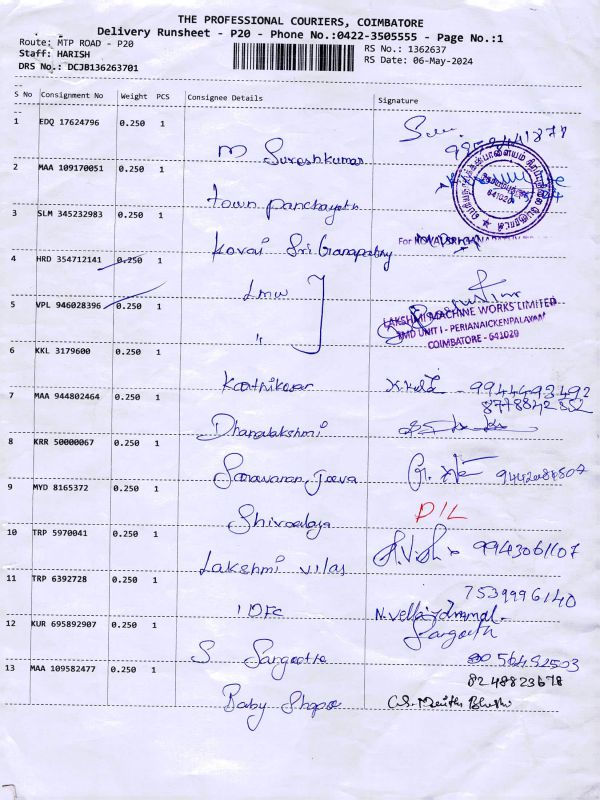 THE PROFESSIONAL COURIERS, COIMBATORE
Delivery Runsheet - P20 - Phone No.:0422-3505555 - Page No.:1
Route: MTP ROAD - P20
RS No.: 1362637
Staff: HARISH
RS Date: 06-May-2024
DRS No.: DCJB136263701
S No Consignment No Weight PCS Consignee Details Signature
1 EDQ 17624796 0.250 1
M Sureshkumar
2 MAA 109170051 0.250 1
641020
Town Panchayath
3 SLM 345232983 0.250 1
For
Kovai Sri Ganapathy
4 HRD 354712141 0.250 1
LMW
5 VPL 946028396 0.250 1
"
LAKSHMI MACHINE WORKS LIMITED
UNIT I - PERIANAICKENPALAYAM
COIMBATORE - 641020
6 KKL 3179600 0.250 1
Karthikesar 9944493492
7 MAA 944802464 0.250 1
8778842552
Dhanalakshmi
8 KRR 50000067 0.250 1
Saravanan Jeeva
9 MYD 8165372 0.250 1
Shivaalaya D/L
10 TRP 5970041 0.250 1
9943061107
Lakshmi Vilas
11 TRP 6392728 0.250 1
7539996140
IDFC
12 KUR 695892907 0.250 1
Sangeetha
S. Sangeetha
13 MAA 109582477 0.250 1
8248823678
Baby Shope